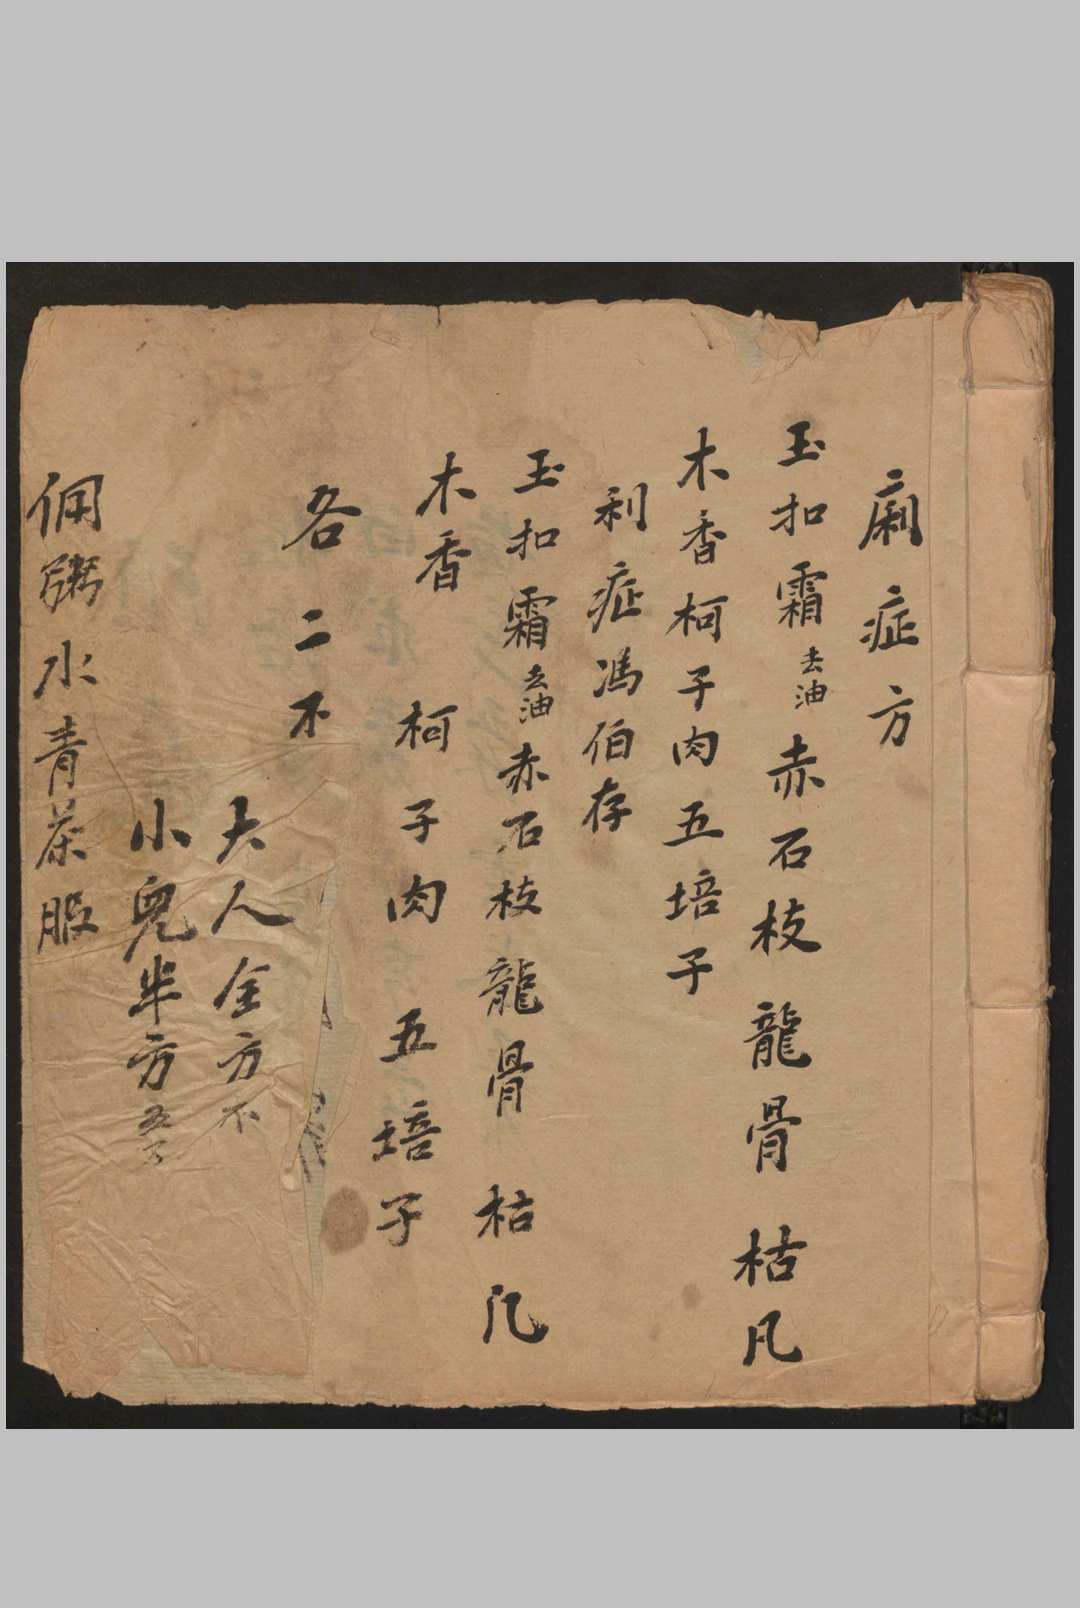 廟症方
玉扣霜去油赤石枝龍骨枯凡
木香柯子肉五培子
利症馮伯存
玉扣霜去油赤石枝龍骨枯凡
木香柯子肉五培子
各二不
大人全方不
小兒半方
佣粥水青茶服